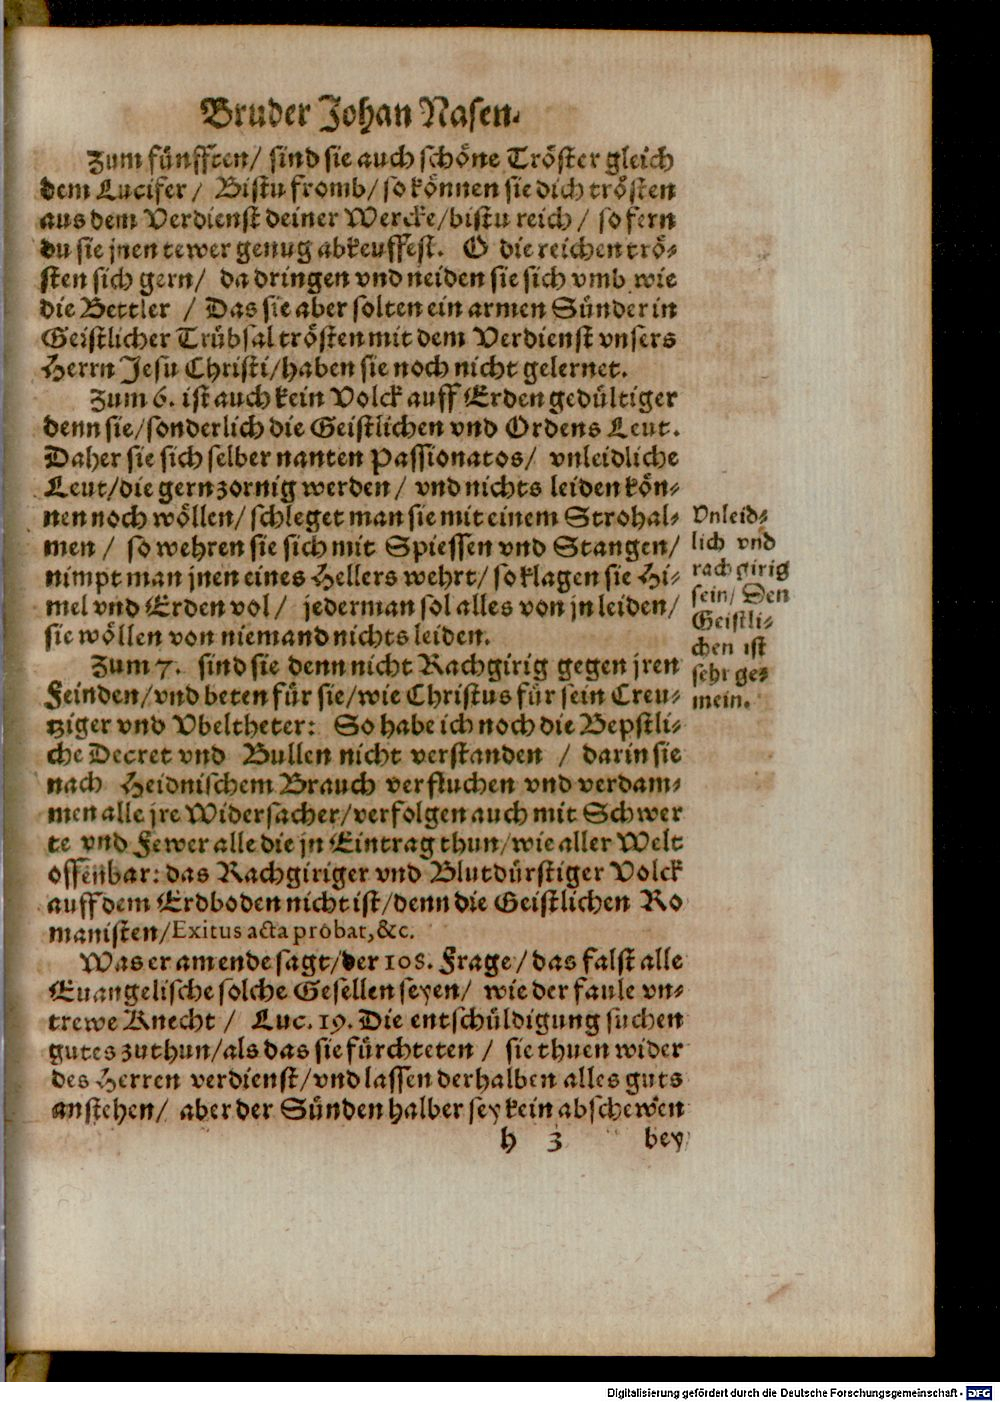 Bruder Johan Nasen.
Zum fünfften/ sind sie auch schöne Tröster gleich
dem Lucifer/ Bistu fromb/ so können sie dich trösten
aus dem Verdienst deiner Wercke/bistu reich/ so fern
du sie jnen tewer genug abkeuffest. O die reichen trö-
sten sich gern/ da dringen vnd neiden sie sich vmb wie
die Bettler / Das sie aber solten ein armen Sünder in
Geistlicher Trübsal trösten mit dem Verdienst vnsers
Herrn Jesu Christi/haben sie noch nicht gelernet.
Zum 6. ist auch kein Volck auff Erden gedültiger
denn sie/sonderlich die Geistlichen vnd Ordens Leut.
Daher sie sich selber nanten Passionatos/ vnleidliche
Leut/die gern zornig werden/ vnd nichts leiden kön-
nen noch wöllen/ schleget man sie mit einem Strohal-
men / so wehren sie sich mit Spiessen vnd Stangen/
nimpt man jnen eines Hellers wehrt/ so klagen sie Hi-
mel vnd Erden vol/ jederman sol alles von jn leiden/
sie wöllen von niemand nichts leiden.
Vnleid-
lich vnd
rachgirig
sein/ Den
Geistli-
chen ist
sehr ge-
mein.
Zum 7. sind sie denn nicht Rachgirig gegen jren
Feinden/vnd beten für sie/wie Christus für sein Creu-
tziger vnd Vbeltheter: So habe ich noch die Bepstli-
che Decret vnd Bullen nicht verstanden / darin sie
nach Heidnischem Brauch verfluchen vnd verdam-
men alle jre Widersacher/verfolgen auch mit Schwer
te vnd Fewer alle die jn Eintrag thun/wie aller Welt
offenbar: das Rachgiriger vnd Blutdürstiger Volck
auff dem Erdboden nicht ist/denn die Geistlichen Ro
manisten/Exitus acta probat,&c.
Was er am ende sagt/der 108. Frage/das falst alle
Euangelische solche Gesellen seyen/ wie der faule vn-
trewe Knecht / Luc. 19. Die entschüldigung suchen
gutes zuthun/als das sie fürchteten / sie thuen wider
des Herren verdienst/vnd lassen derhalben alles guts
anstehen/ aber der Sünden halber sey kein abschewen
h 3 bey
Digitalisierung gefördert durch die Deutsche Forschungsgemeinschaft - DFG